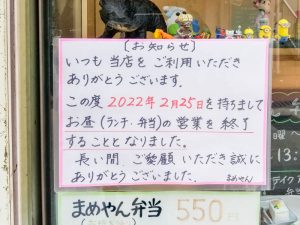 〔お知らせ〕
いつも当店をご利用いただき
ありがとうございます。
この度2022年2月25日を持ちまして
お昼(ランチ・弁当)の営業を終了
することとなりました。
長い間、ご愛顧いただき誠に
ありがとうございました。 まめやん
まめやん弁当 550円